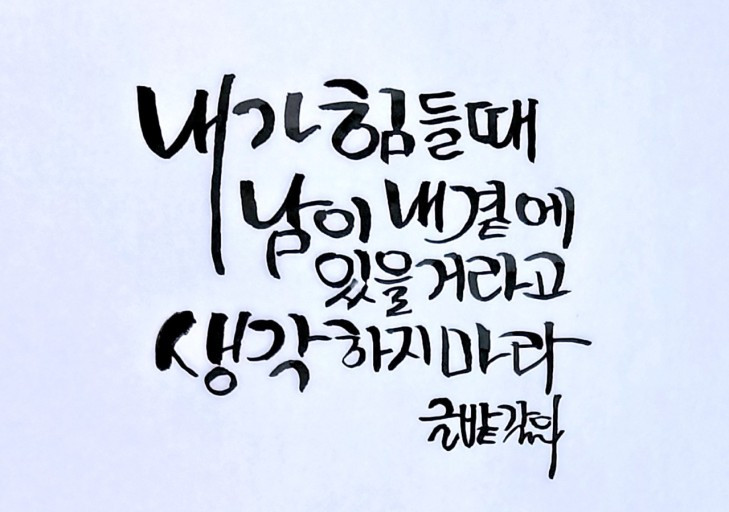 내가 힘들때
남이 내곁에
있을거라고
생각하지마라
글밭